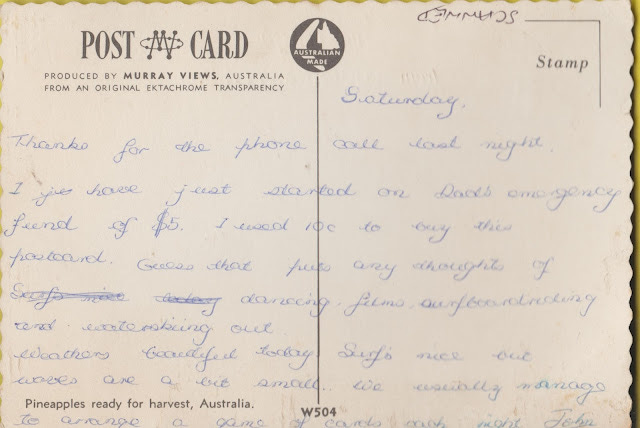 SCANNED
POST CARD
AUSTRALIAN
MADE
Stamp
PRODUCED BY MURRAY VIEWS, AUSTRALIA
FROM AN ORIGINAL EKTACHROME TRANSPARENCY
Saturday.
Thanks for the phone call last night.
I have just started on Dad's emergency
fund of $5. I used 10c to buy this
postcard. Guess that puts any thoughts of
Surf's nice today dancing, films, surfboardriding
and waterskiing out.
Weathers beautiful today. Surf's nice but
waves are a bit small. We usually manage
to arrange a game of cards each night. John
Pineapples ready for harvest, Australia.
W504